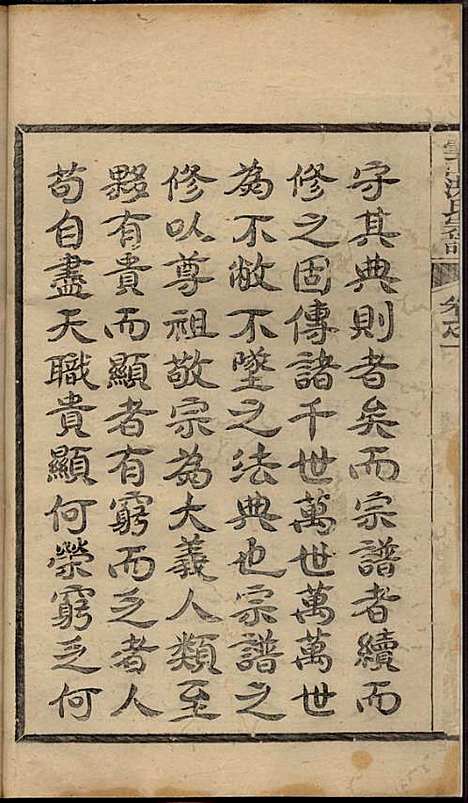 守其典則者矣而宗譜者續而
修之固傳諸千世萬世萬萬世
為不敝不墜之法典也宗譜之
修以尊祖敬宗為大義人類至
夥有貴而顯者有窮而乏者人
苟自盡天職貴顯何榮窮乏何